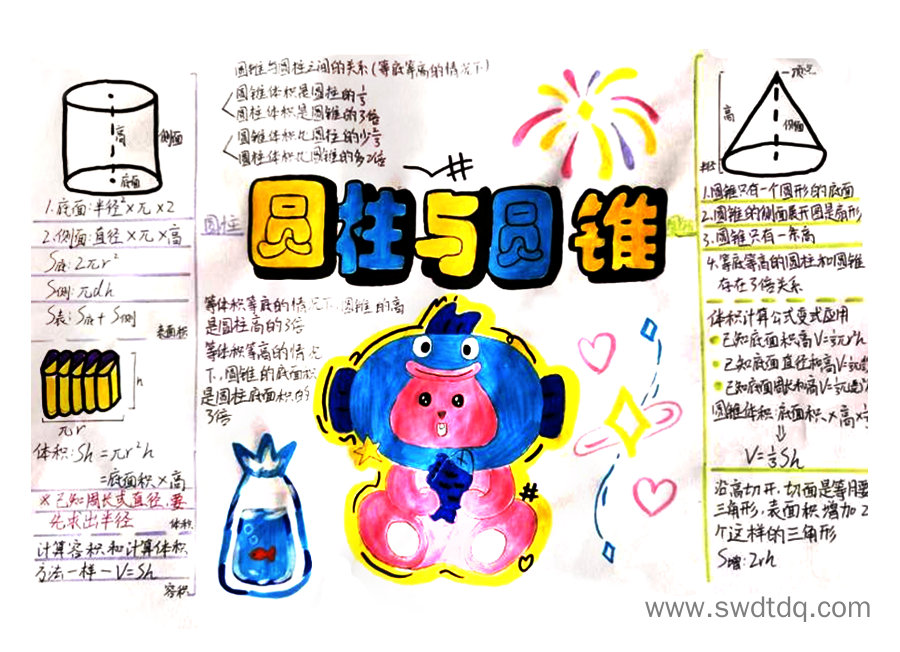 圆锥与圆柱之间的关系(等底等高的情况下)
圆锥体积是圆柱的1/3
圆柱体积是圆锥的3倍
圆锥体积比圆柱的少2/3
圆柱体积比圆锥的多2倍
圆柱与圆锥
圆柱
高
侧面
底面
1.底面:半径²×π×2
2.侧面:直径×π×高
S底:2πr²
S侧:πdh
S表:S底+S侧
表面积
h
πr
体积:Sh=πr²h
=底面积×高
※已知周长或直径,要
先求出半径
体积
计算容积和计算体积
方法一样—V=Sh
容积
等体积等底的情况下,圆锥的高
是圆柱高的3倍
等体积等高的情况
下,圆锥的底面积
是圆柱底面积的
3倍
顶点
高
侧面
1.圆锥只有一个圆形的底面
2.圆锥的侧面展开图是扇形
3.圆锥只有一条高
4.等底等高的圆柱和圆锥
存在3倍关系
体积计算公式变式应用
已知底面积高V=1/3πr²h
已知底面直径和高V=1/3π
已知底面周长和高V=1/3π
圆锥体积:底面积×高×1/3
⇓
V=1/3Sh
沿高切开,切面是等腰
三角形,表面积增加2
个这样的三角形
S增:2rh
www.swdtdq.com